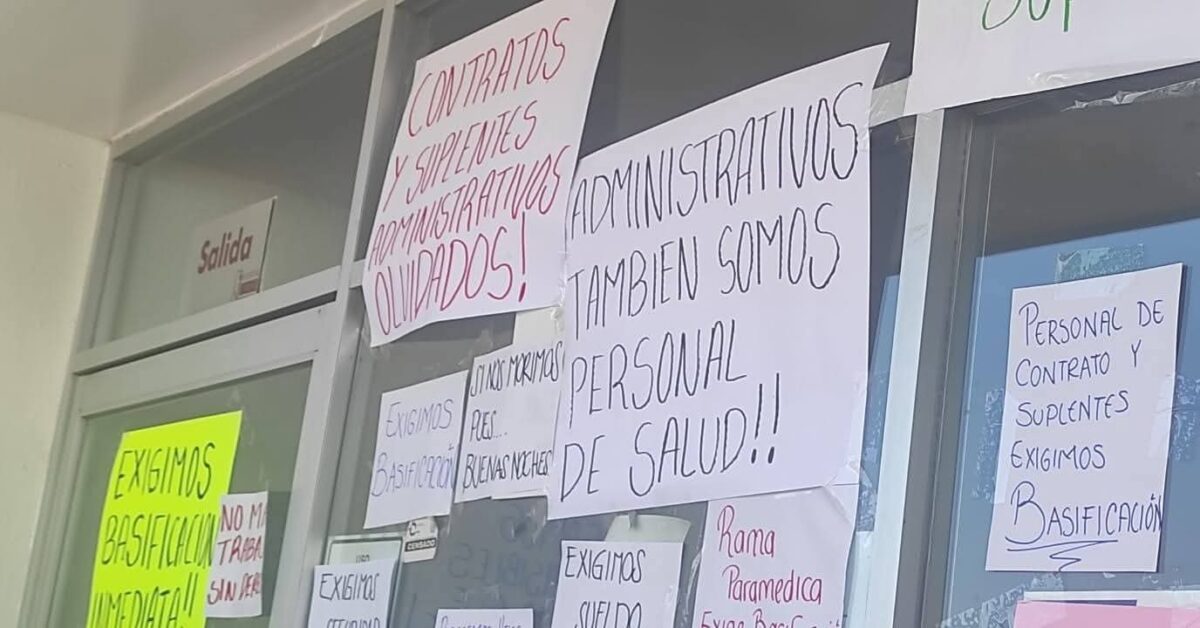 Salida
CONTRATOS
Y SUPLENTES
ADMINISTRATIVOS
OLVIDADOS!
ADMINISTRATIVOS
TAMBIEN SOMOS
PERSONAL
DE SALUD!!
PERSONAL DE
CONTRATO Y
SUPLENTES
EXIGIMOS
BASIFICACIÓN
EXIGIMOS
BASIFICACIÓN
SI NOS MORIMOS
PUES...
BUENAS NOCHES
EXIGIMOS
BASIFICACION
INMEDIATA!!
NO
SIN
CENSADO
EXIGIMOS
EXIGIMOS
SUELDO
Rama
Paramedica